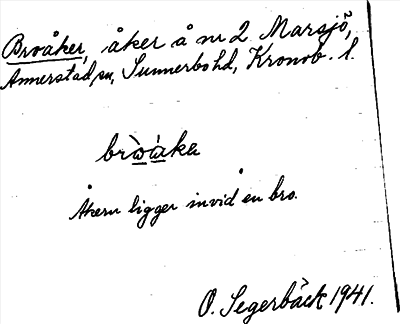 Broåker, åker å nr 2 Marsjö,
Annerstad sn, Sunnerbo hd, Kronob. l.
bròåka
Åkern ligger invid en bro.
O. Segerbäck 1941.